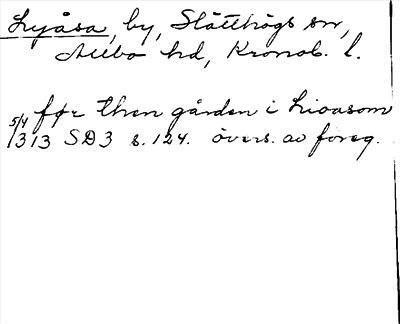 Lyåsa, by, Slätthögs sn,
Allbo hd, Kronob. l.
før then gården i Lioasom
5/4 1313 SD3 s. 124. övers. av föreg.